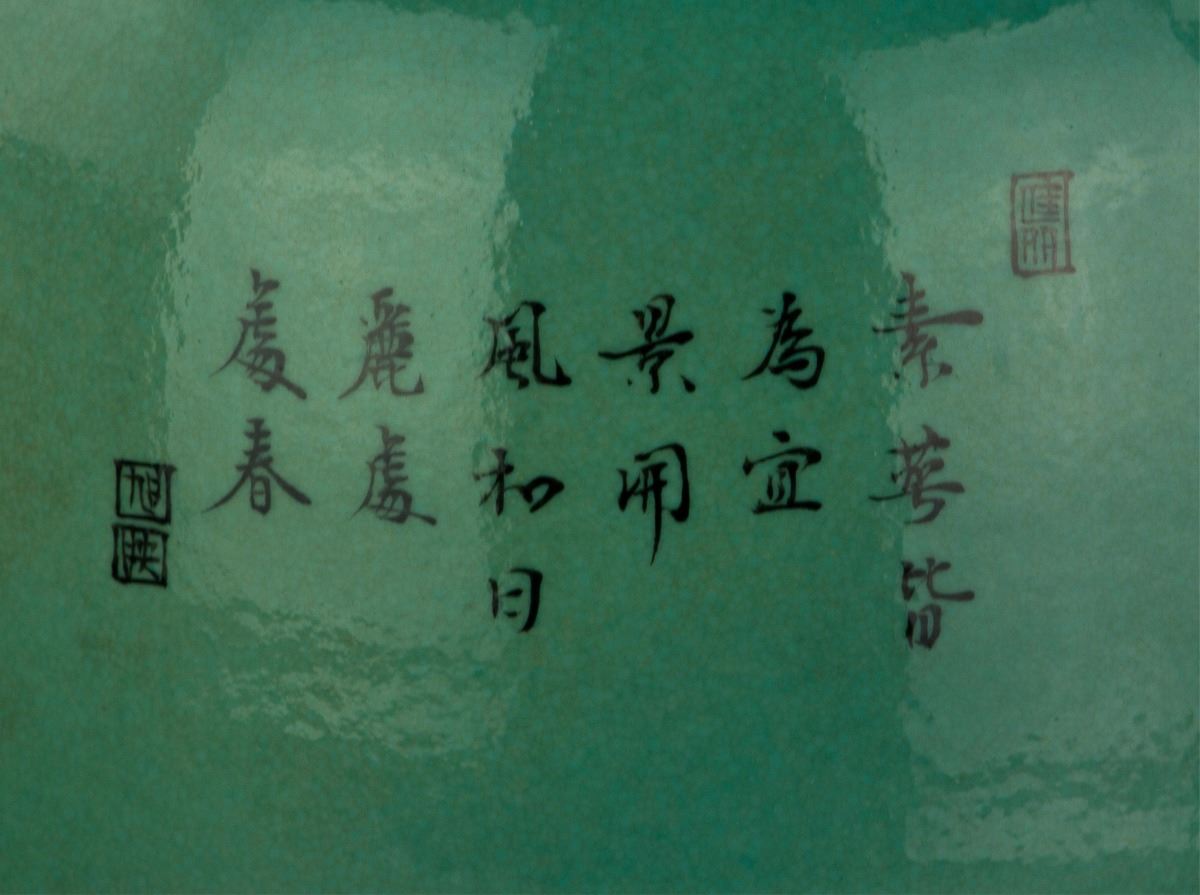 素萼皆
為宜
景開
風和日
麗處
處春
旭